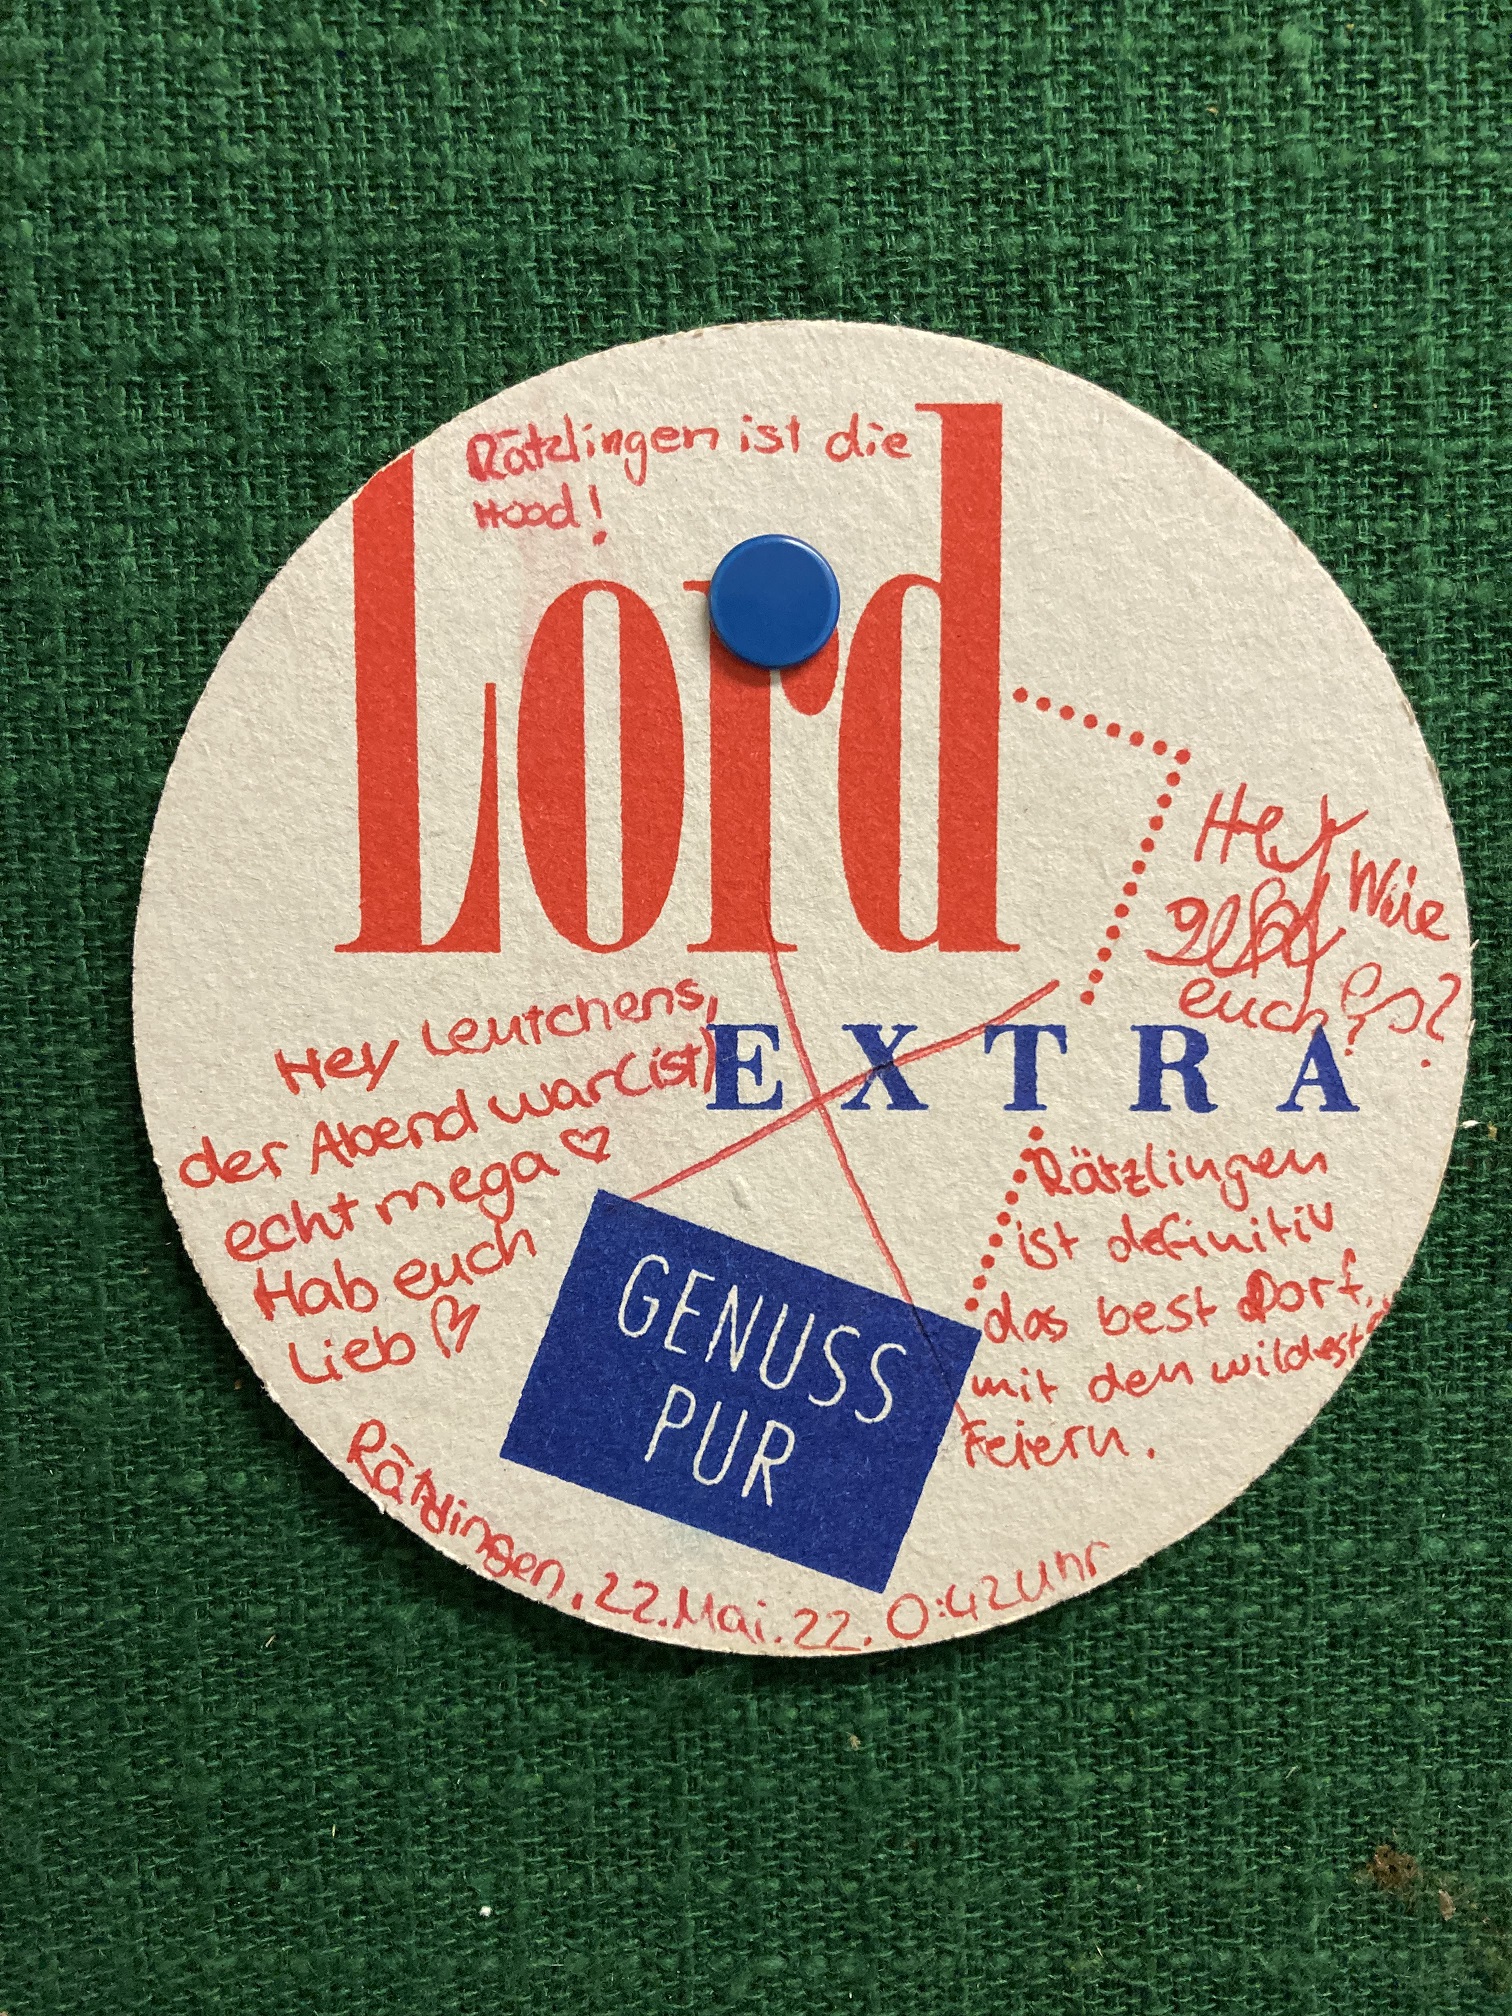 Rätzlingen ist die
Hood!
Lord
Hey Wie
geht es?
euch?
EXTRA
Hey Leutchens,
der Abend war(ist)
echt mega ♡
Hab euch
Lieb ♡
Rätzlingen
ist definitiv
das best Dorf..
mit den wildeste
Feiern.
GENUSS
PUR
Rätzlingen, 22.Mai.22. 0:42Uhr